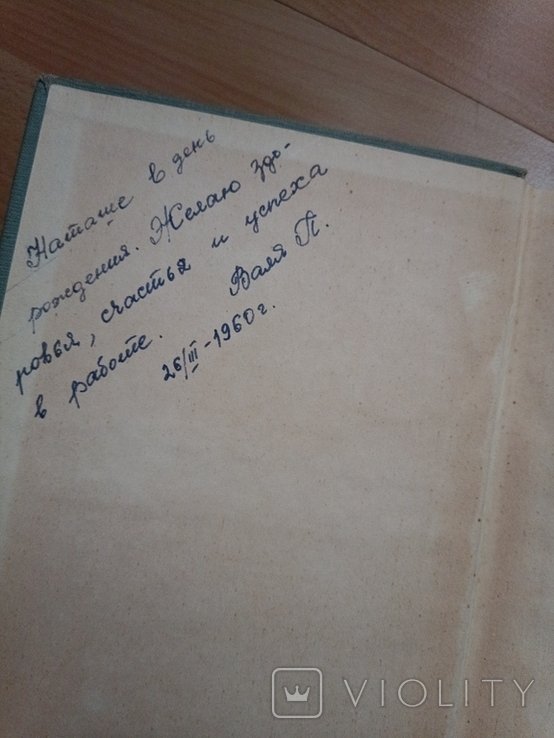 Наташе в день
рождения. Желаю здо-
ровья, счастья и успеха
в работе. Валя П.
26/III-1960г.
VIOLITY